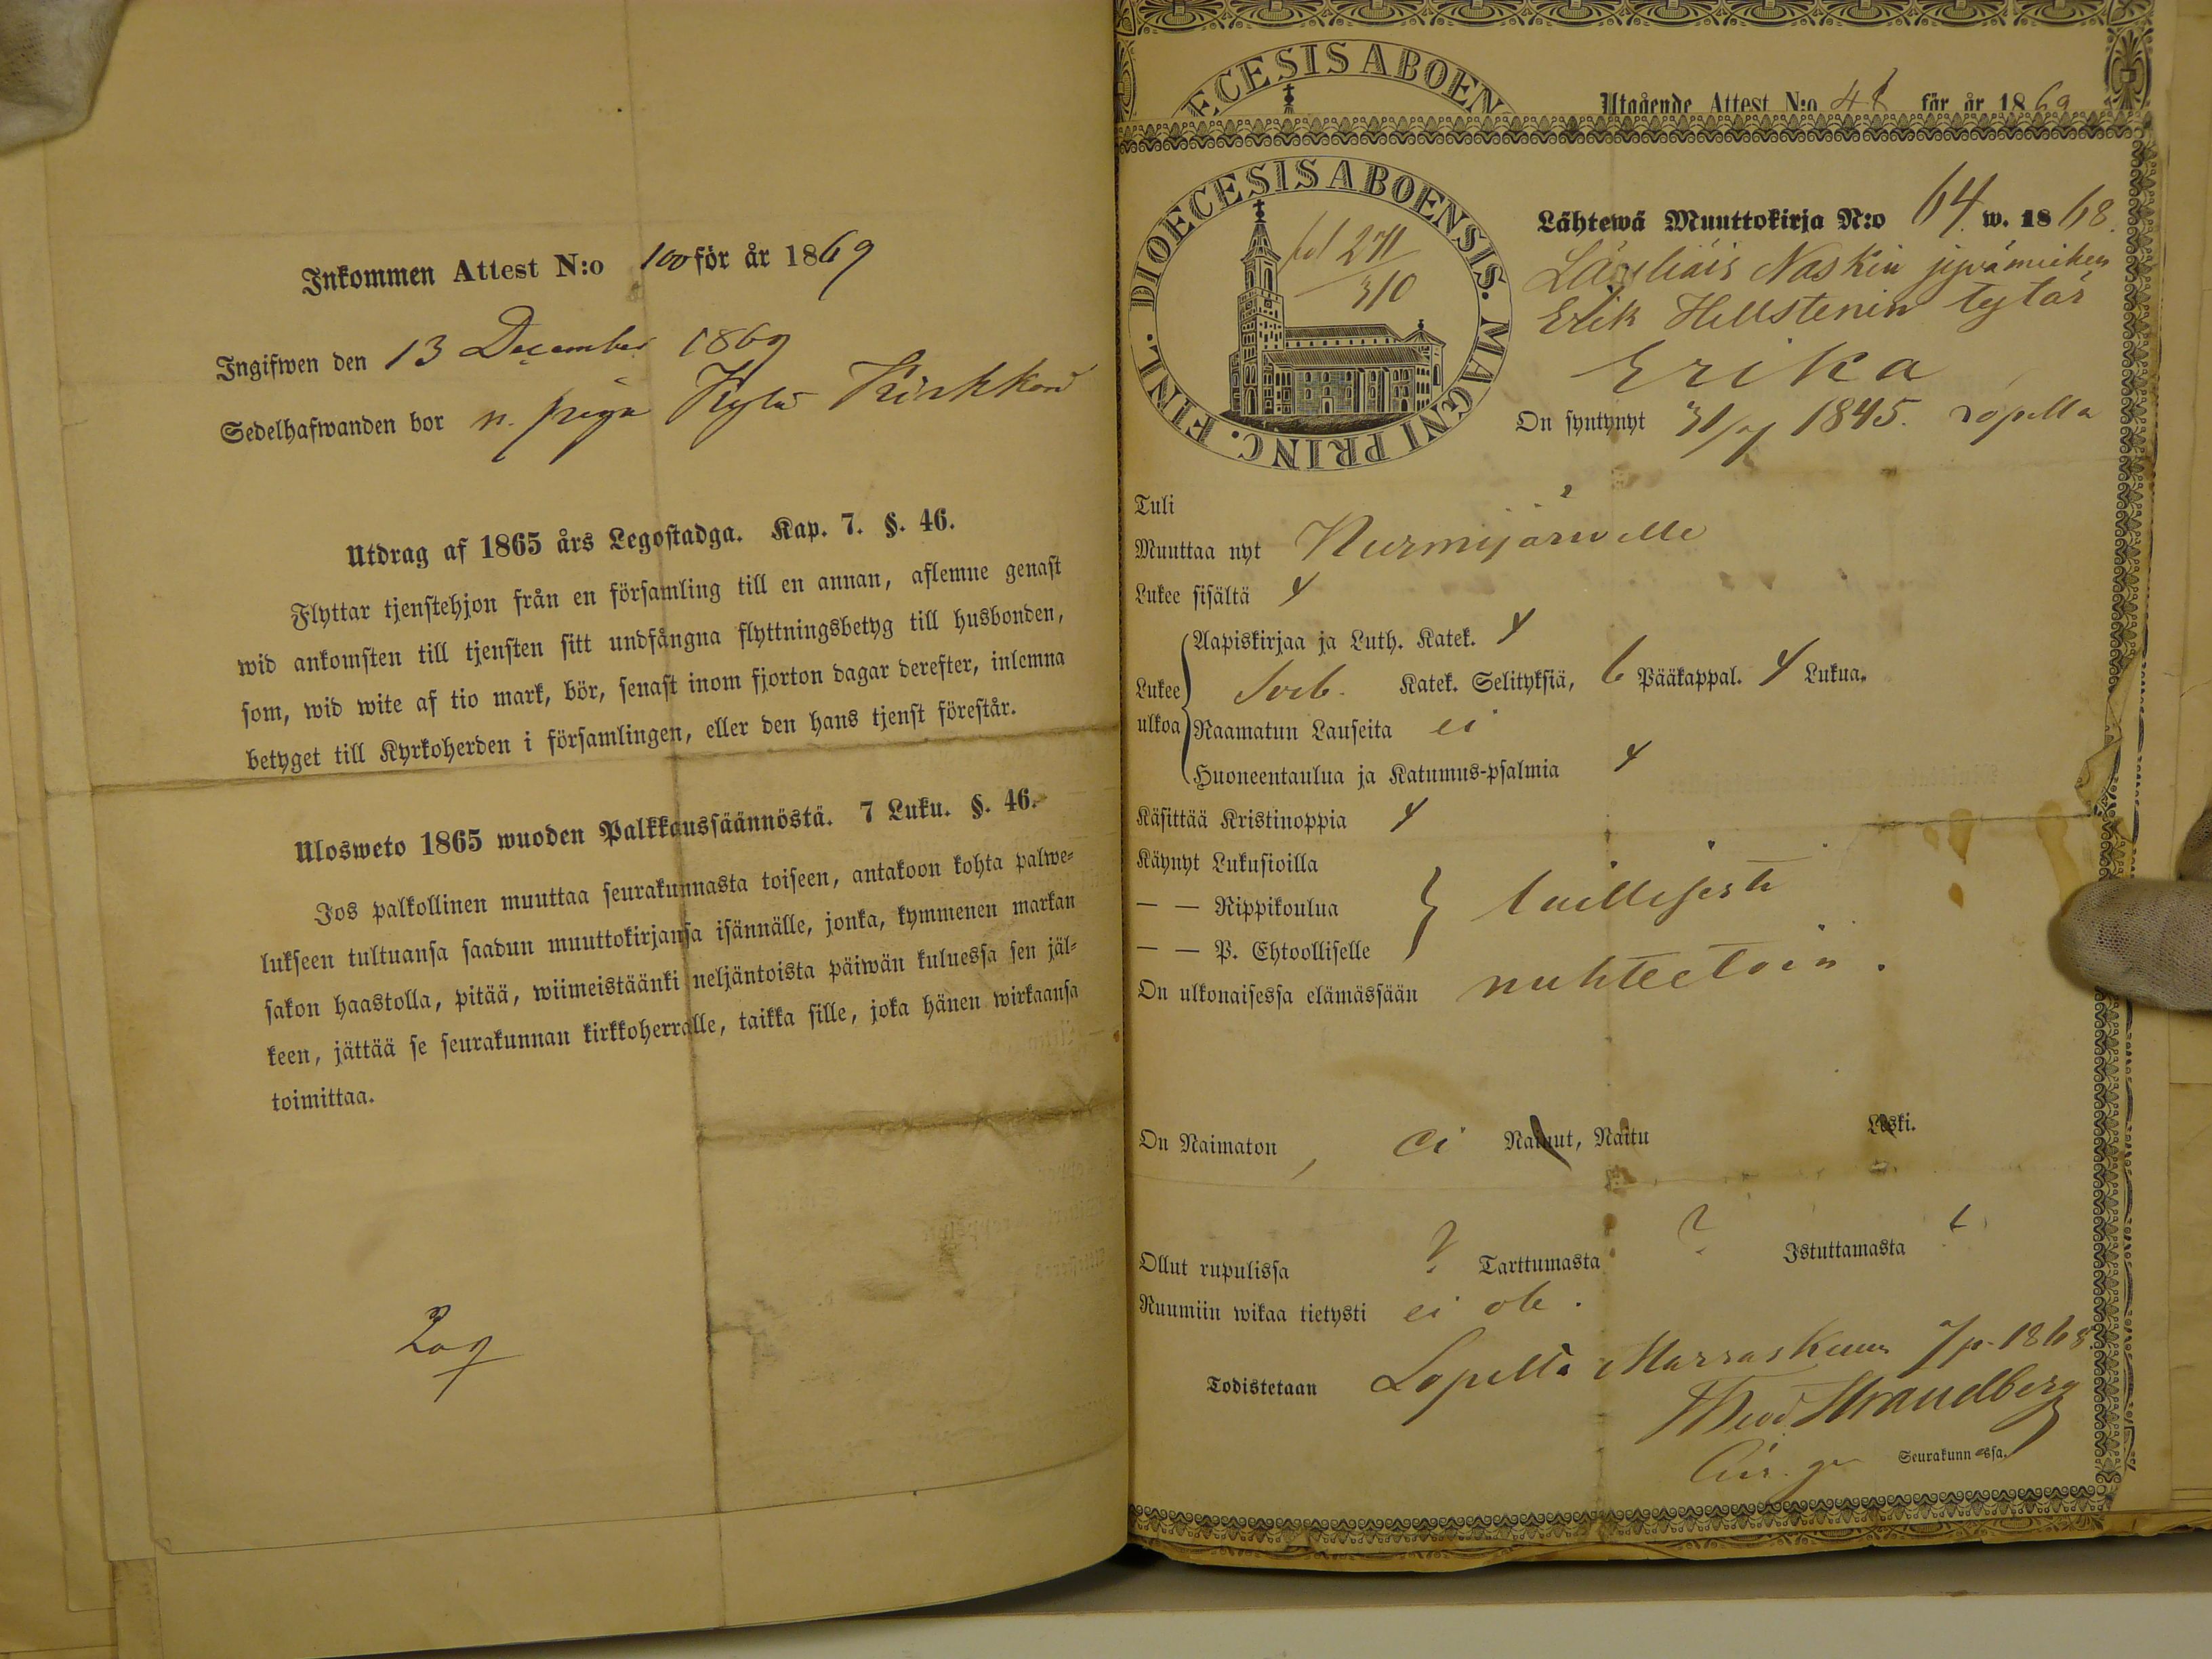 Inkommen Attest N:o 100 för år 1869
Ingifwen den 13 December 1869
Sedelhafwanden bor n. piga Kylä
Utdrag af 1865 års Legostadga. Kap. 7. §. 46.
Flyttar tjenstehjon från en församling till en annan, aflemne genast
wid ankomsten till tjensten sitt undfångna flyttningsbetyg till husbonden,
som, wid wite af tio mark, bör, senast inom fjorton dagar derefter, inlemna
betyget till Kyrkoherden i församlingen, eller den hans tjenst förestår.
Ulosweto 1865 wuoden Palkkaussäännöstä. 7 Luku. §. 46.
Jos palkollinen muuttaa seurakunnasta toiseen, antakoon kohta palwe-
lukseen tultuansa saadun muuttokirjansa isännälle, jonka, kymmenen markan
sakon haastolla, pitää, wiimeistäänki neljäntoista päiwän kuluessa sen jäl-
keen, jättää se seurakunnan kirkkoherralle, taikka sille, joka hänen wirkaansa
toimittaa.
ECESIS ABOEN
Utgående Attest N:o 48 för år 1869
DIOECESIS ABOENSIS. MAGNI PRINC. FINL.
fol 271
310
Lähtewä Muuttokirja N:o 64 w. 1868.
Läyliäis Naskin jyvämiehen
Erik Hellstenin tytär
Erika
On syntynyt 31/7 1845. Lopella
Tuli
Muuttaa nyt Nurmijärwelle
Lukee sisältä 4
Aapiskirjaa ja Luth. Katek. 4
Lukee ulkoa
Sveb. Katek. Selityksiä, 6 Pääkappal. 4 Lukua.
Raamatun Lauseita ei
Huoneentaulua ja Katumus-psalmia 4
Käsittää Kristinoppia 4
Käynyt Lukusioilla
— — Rippikoulua
laillisesti
— — P. Ehtoolliselle
On ulkonaisessa elämässään nuhteetoin.
On Naimaton, ei Nainut, Naitu Leski.
Ollut rupulissa ? Tarttumasta ? Istuttamasta
Ruumiin wikaa tietysti ei ole.
Todistetaan Lopella Marraskuun 7 p. 1868.
Theod. Strandberg
Seurakunnassa.